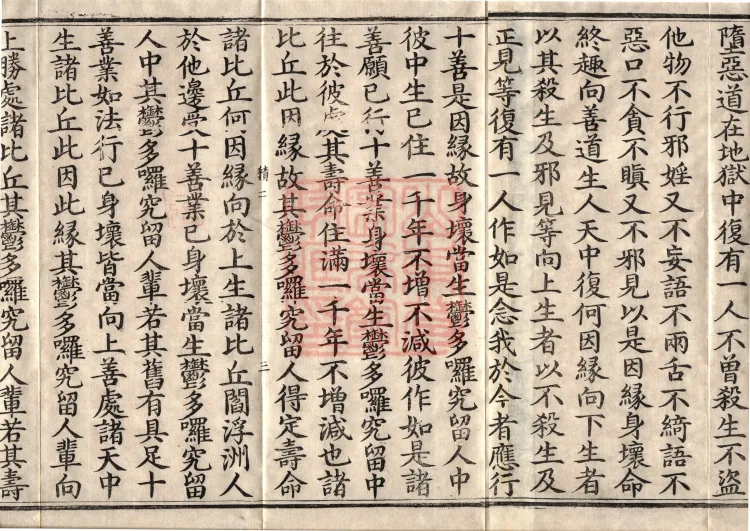 墮惡道在地獄中復有一人不曾殺生不盜
他物不行邪婬又不妄語不兩舌不綺語不
惡口不貪不瞋又不邪見以是因緣身壞命
終趣向善道生人天中復何因緣向下生者
以其殺生及邪見等向上生者以不殺生及
正見等復有一人作如是念我於今者應行
十善是因緣故身壞當生鬱多囉究留人中
彼中生已住一千年不增不減彼作如是諸
善願已行十善業身壞當生鬱多囉究留中
往於彼處其壽命住滿一千年不增減也諸
比丘此因緣故其鬱多囉究留人得定壽命
精二 三
諸比丘何因緣向於上生諸比丘閻浮洲人
於他邊受十善業已身壞當生鬱多囉究留
人中其鬱多囉究留人輩若其舊有具足十
善業如法行已身壞皆當向上善處諸天中
生諸比丘此因此緣其鬱多囉究留人輩向
上勝處諸比丘其鬱多囉究留人輩若其壽